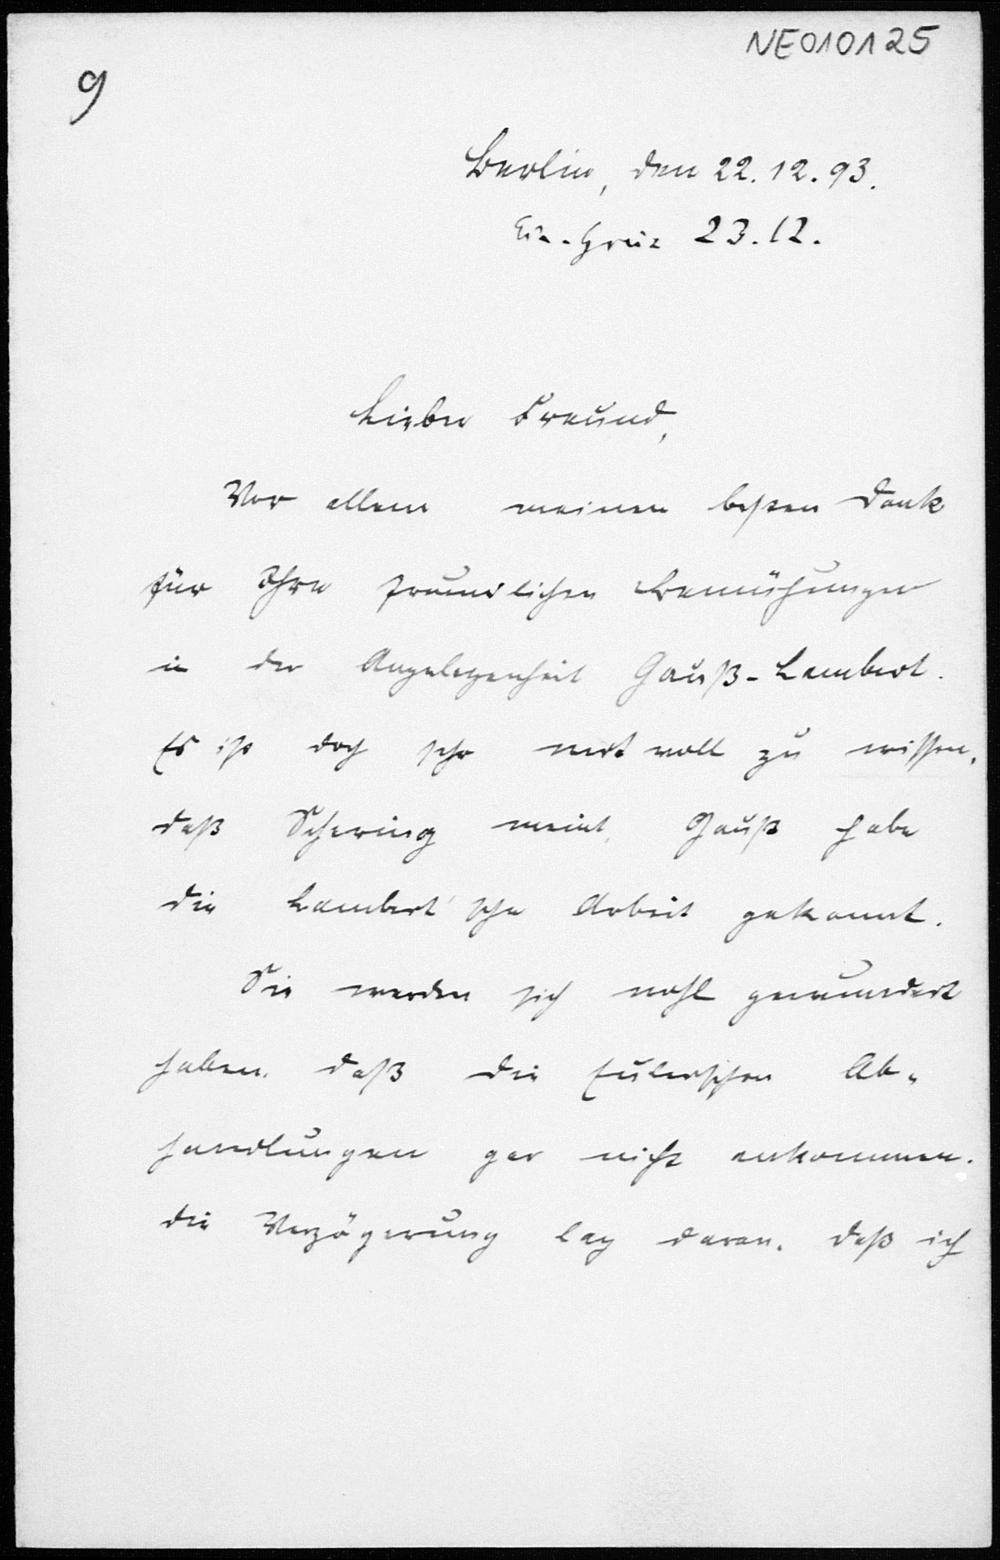 NE010125
9
Berlin, den 22.12.93.
23.12.
Lieber Freund,
Vor allem meinen besten Dank
für Ihre freundlichen Bemühungen
in der Angelegenheit Gauß-Lambert.
Es ist doch sehr wertvoll zu wissen,
daß Schering meint, Gauß habe
die Lambert'sche Arbeit gekannt.
Sie werden sich wohl gewundert
haben, daß die Eulerschen Ab-
handlungen gar nicht ankommen.
Die Verzögerung lag daran, daß ich